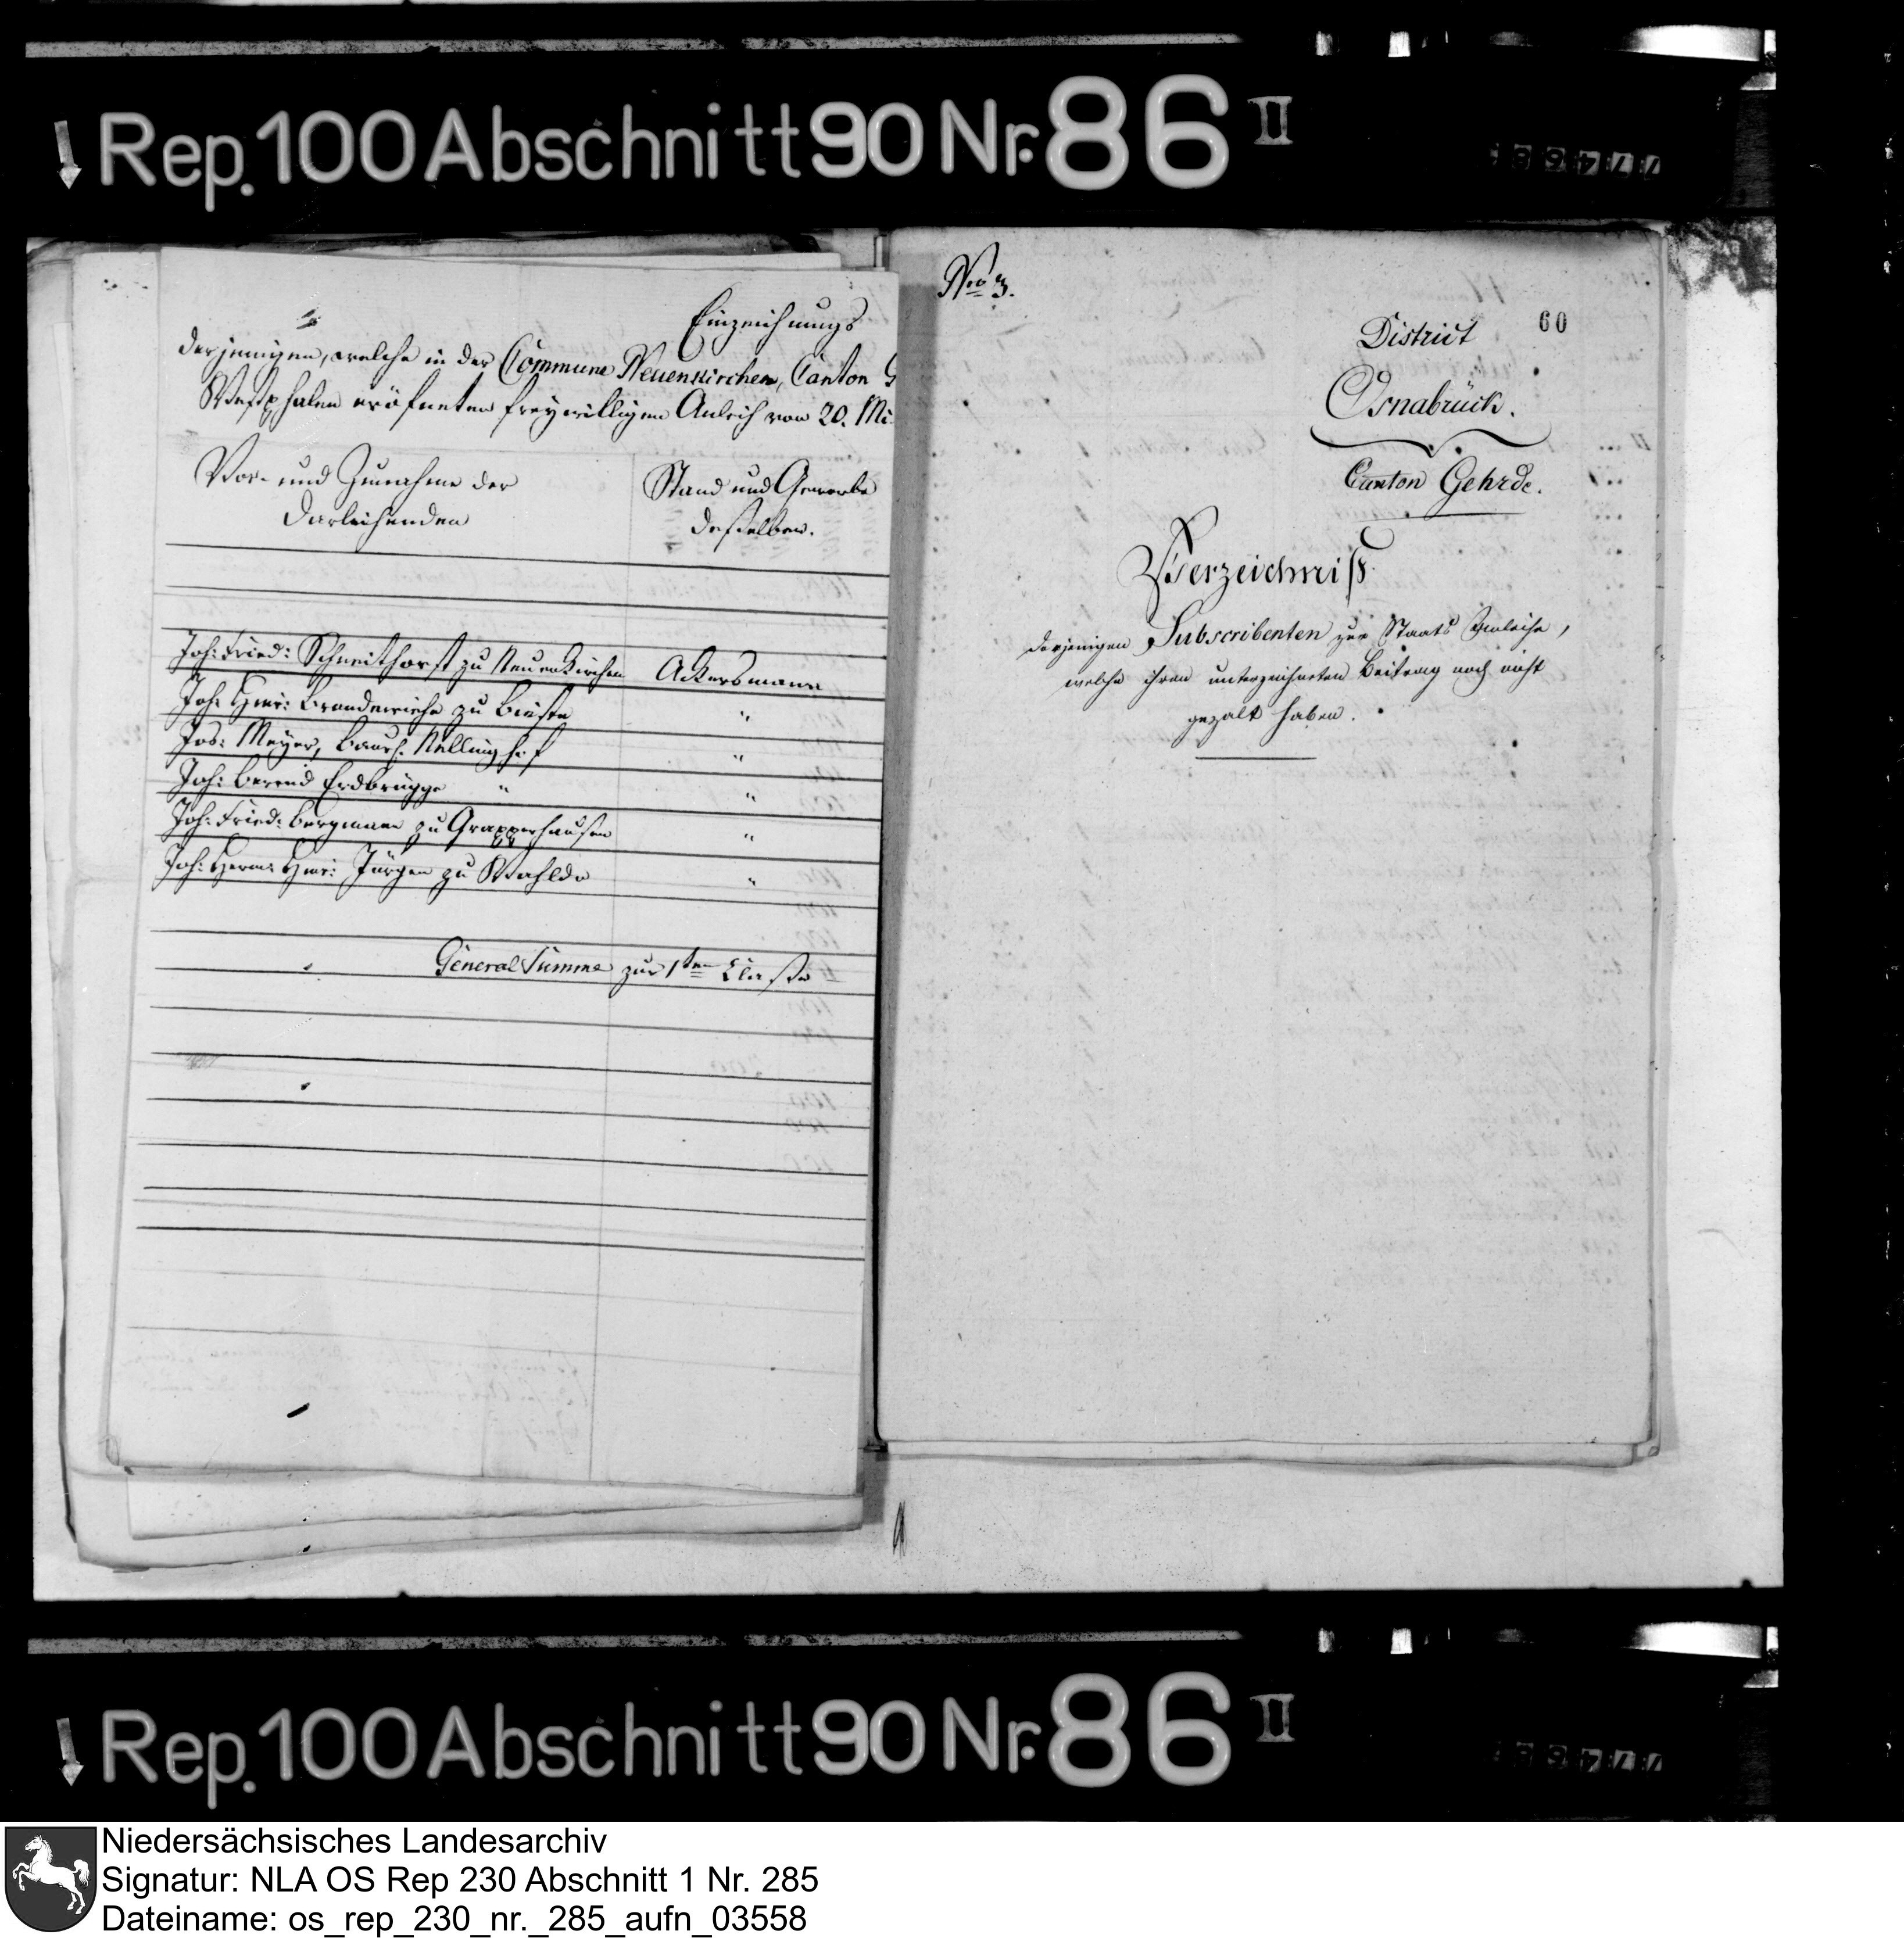 Rep. 100 Abschnitt 90 Nr. 86 II
Einzeichnungs
derjenigen, welche in der Commune Neuenkirchen, Canton G
Westphalen eröfneten freywilligen Anleih von 20. Mi
Vor- und Zunahme der
Darleihenden
Stand und Gewerbe
desselben.
Joh: Fried: Schneithorst zu Neuenkirchen Ackersmann
Joh: Henr: Brandewiehe zu Bieste "
Jos: Meyer, Baursch. Nellinghof "
Joh: Berend Erdbrügge " "
Joh: Fried: Bergmann zu Grapperhausen "
Joh: Herm: Henr: Jürgen zu Wahlde "
General Summe zur 1ten Classe
No 3.
60
District
Osnabrück.
Canton Gehrde.
Verzeichniß
derjenigen Subscribenten zur Staats Anleihe,
welche ihren unterzeichneten Beitrag noch nicht
gezalt haben.
Rep. 100 Abschnitt 90 Nr. 86 II
Niedersächsisches Landesarchiv
Signatur: NLA OS Rep 230 Abschnitt 1 Nr. 285
Dateiname: os_rep_230_nr._285_aufn_03558